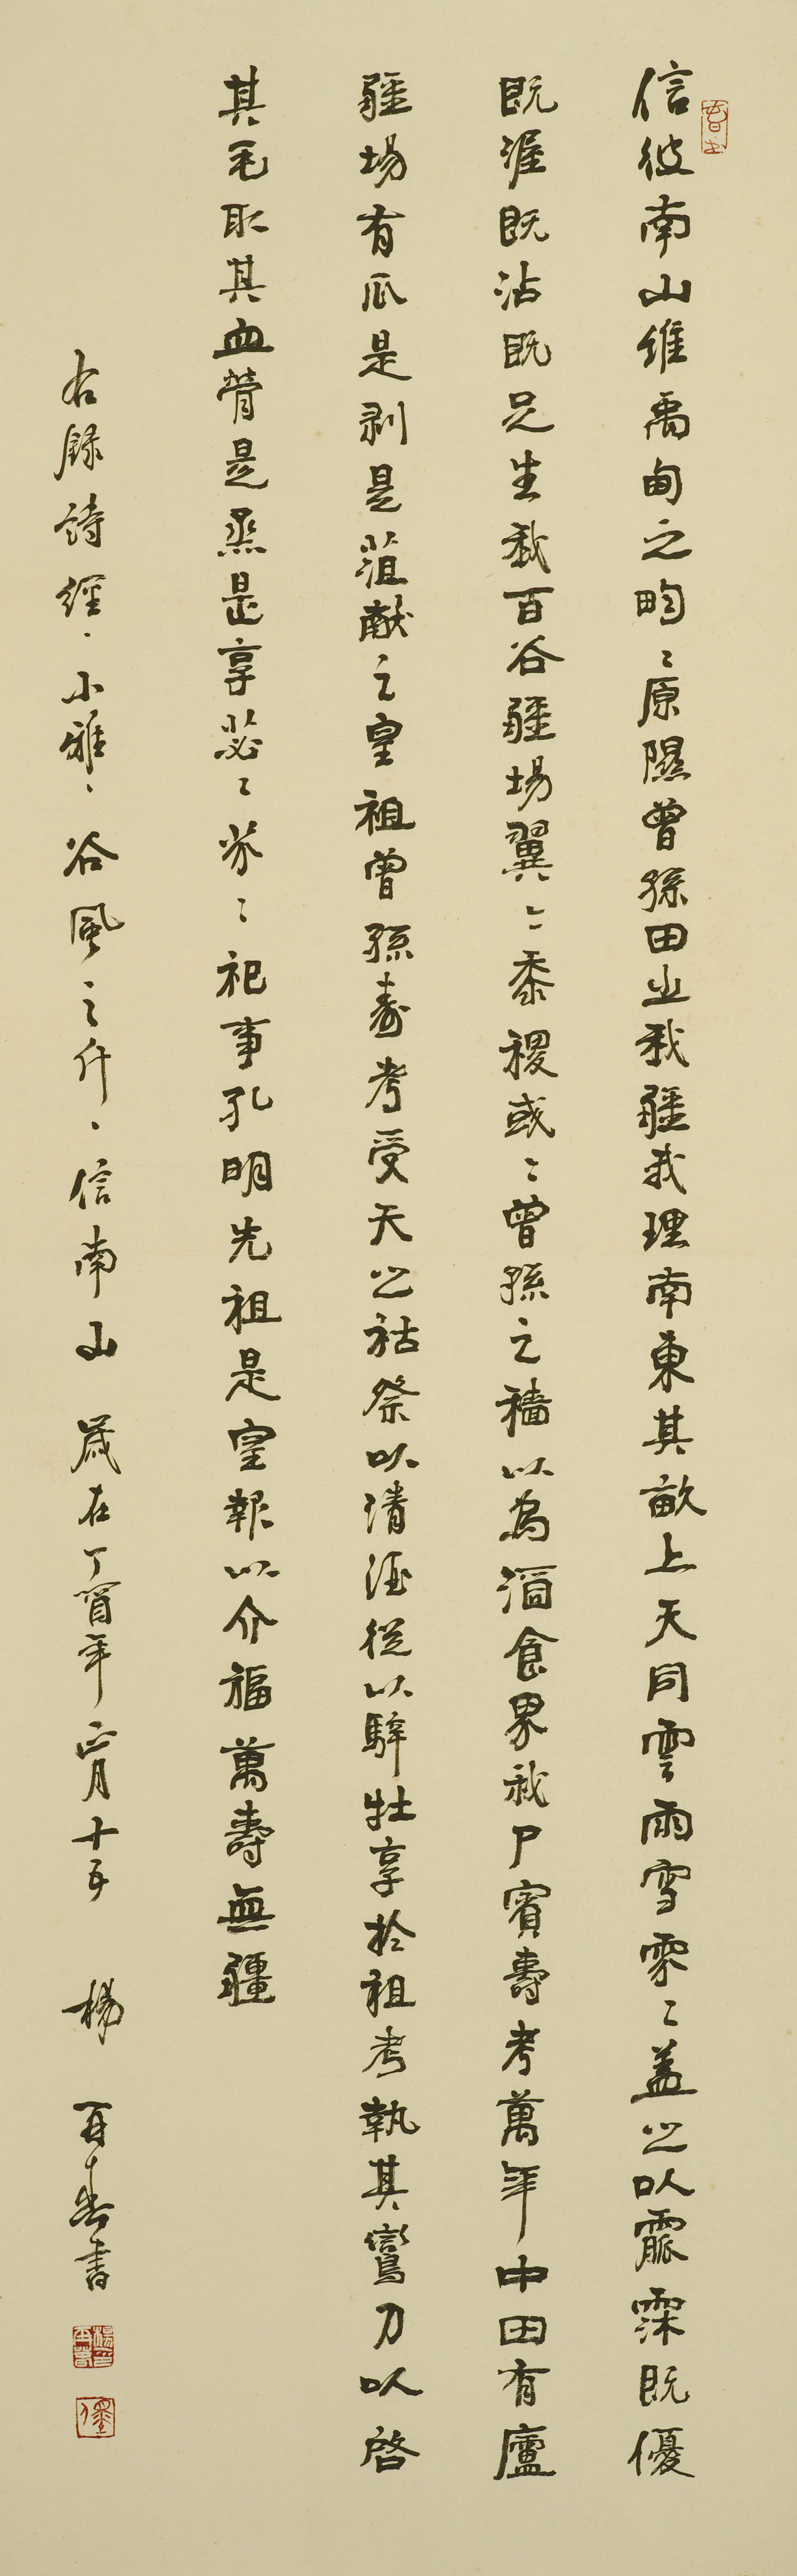 信彼南山維禹甸之畇〻原隰曾孫田之我疆我理南東其畝上天同雲雨雪雰〻益之以霢霂既優
既渥既沾既足生我百谷疆埸翼〻黍稷或〻曾孫之穡以為酒食畀我尸賓壽考萬年中田有廬
疆埸有瓜是剥是菹献之皇祖曾孫壽考受天之祜祭以清酒從以騂牡享於祖考執其鸞刀以啓
其毛取其血膋是烝是享苾〻芬〻祀事孔明先祖是皇報以介福萬壽無疆
右録詩經、小雅、谷風之什、信南山 歲在丁酉年正月十五 楊再春書